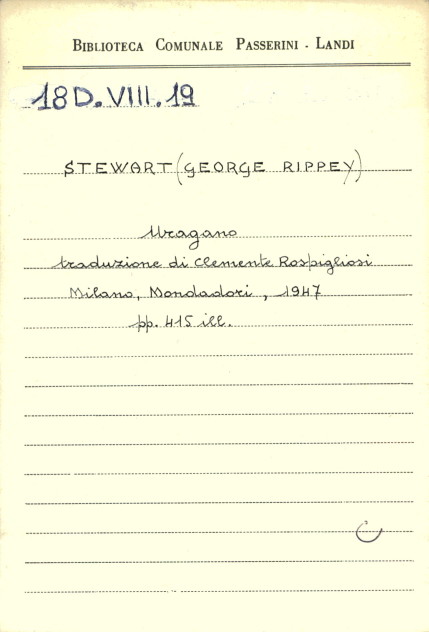 BIBLIOTECA COMUNALE PASSERINI - LANDI
18D.VIII.19
STEWART (GEORGE RIPPEY)
Uragano
traduzione di Clemente Rospigliosi
Milano, Mondadori, 1947
pp. 415 ill.